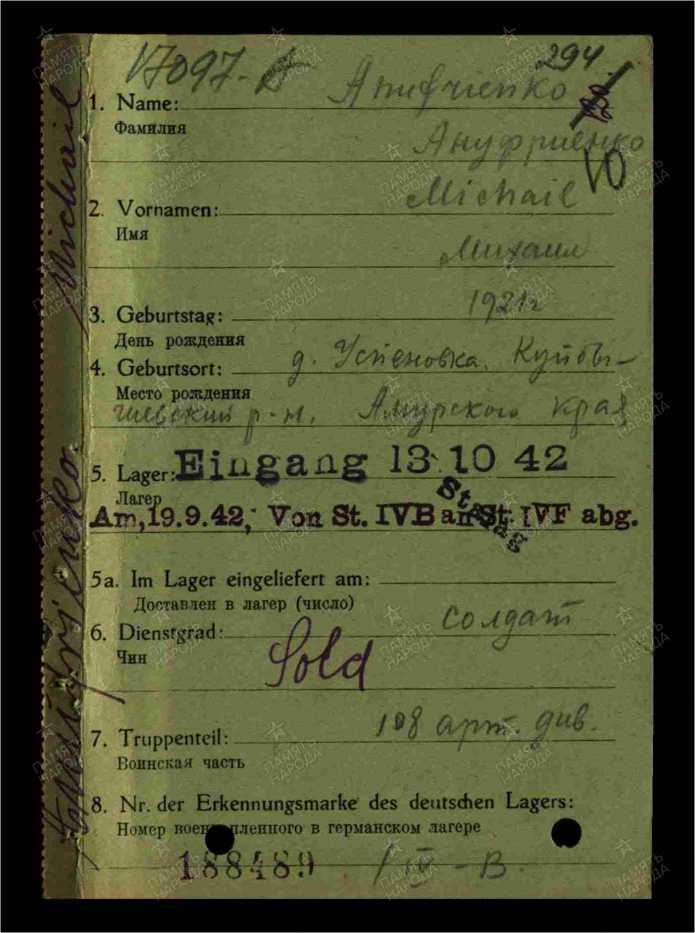 17097-
294
1. Name: Anufrienko
Фамилия
Ануфриенко
VO
2. Vornamen: Michail
Имя
Михаил
3. Geburtstag: 1921г
День рождения
4. Geburtsort: д. Успеновка, Куйбы-
Место рождения
шевский р-н. Амурского края
5. Lager: Eingang 13 10 42
Лагер
Stalag
Am, 19.9.42, Von St. IVB an St. IVF abg.
5a. Im Lager eingeliefert am:
Доставлен в лагер (число)
6. Dienstgrad: солдат
Чин
Sold
7. Truppenteil: 108 арт. див.
Воинская часть
8. Nr. der Erkennungsmarke des deutschen Lagers:
Номер воен пленного в германском лагере
188489 / IV-B.
Anufrienko Michail
ПАМЯТЬ НАРОДА